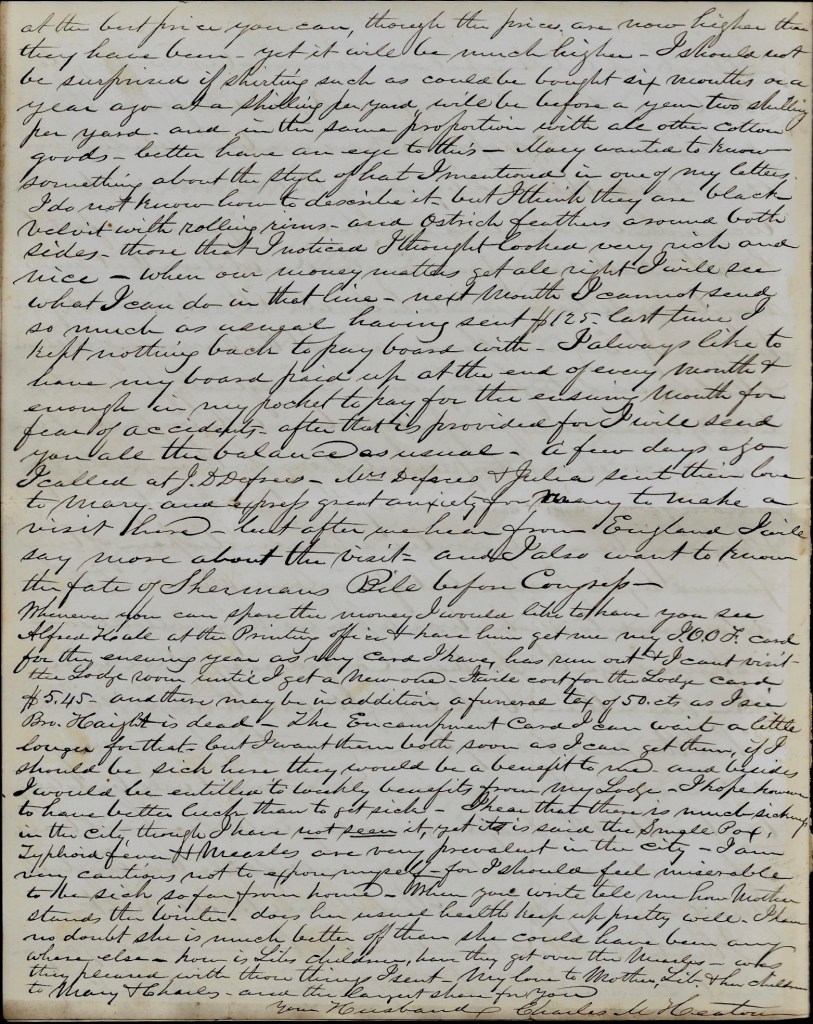 at the best price you can, though the prices are now higher than
they have been - yet it will be much higher - I should not
be surprised if shirting such as could be bought six months or a
year ago at a shilling per yard will be before a year two shilling
per yard - and in the same proportion with all other cotton
goods - better have an eye to this - Mary wanted to know
something about the style of hat I mentioned in one of my letters.
I do not know how to describe it - but I think they are black
velvit with rolling rims - and Ostrich feathers around both
sides - those that I noticed I thought looked very rich and
nice - when our money matters get all right I will see
what I can do in that line - next month I cannot send
so much as usual having sent $125 - last time I
kept nothing back to pay board with - I always like to
have my board paid up at the end of every month &
enough in my pocket to pay for the ensuing month for
fear of accidents - after that is provided for I will send
you all the balance as usual - a few days ago
I called at J. D Defrees - Mrs Defrees & Julia sent their love
to Mary - and express great anxiety for Mary to make a
visit here - but after we hear from England I will
say more about the visit - and I also want to know
the fate of Shermans Bile before Congress -
Whenever you can spare the money I would like to have you see
Alfred at the Printing office & have him get me my I.O.O.F. card
for the ensuing year as my card I have, has run out & I cant visit
the Lodge room until I get a new one - It will cost for the Lodge card
$5.45 - and there may be in addition a funeral tax of 50.cts as I see
Bro. Haight is dead - The Encampment Card I can wait a little
longer for that - but I want them both soon as I can get them, if I
should be sick here they would be a benefit to me - and besides
I would be entitled to weekly benefits from my Lodge - I hope however
to have better luck than to get sick - I hear that there is much sickness
in the city, though I have not seen it, yet its is said the Small Pox,
Typhoid fever & Measles are very prevalent in the city - I am
very cautious not to expose myself - for I should feel miserable
to be sick so far from home - When you write tell me how Mother
stands the winter - does her usual health keep up pretty well - I have
no doubt she is much better off than she could have been any
where else - how is Libs children, have they got over the Measles - was
they pleased with those things I sent - My love to Mother, Lib, & her children
to Mary & Charles - and the largest share for You
Your Husband Charles M Heaton